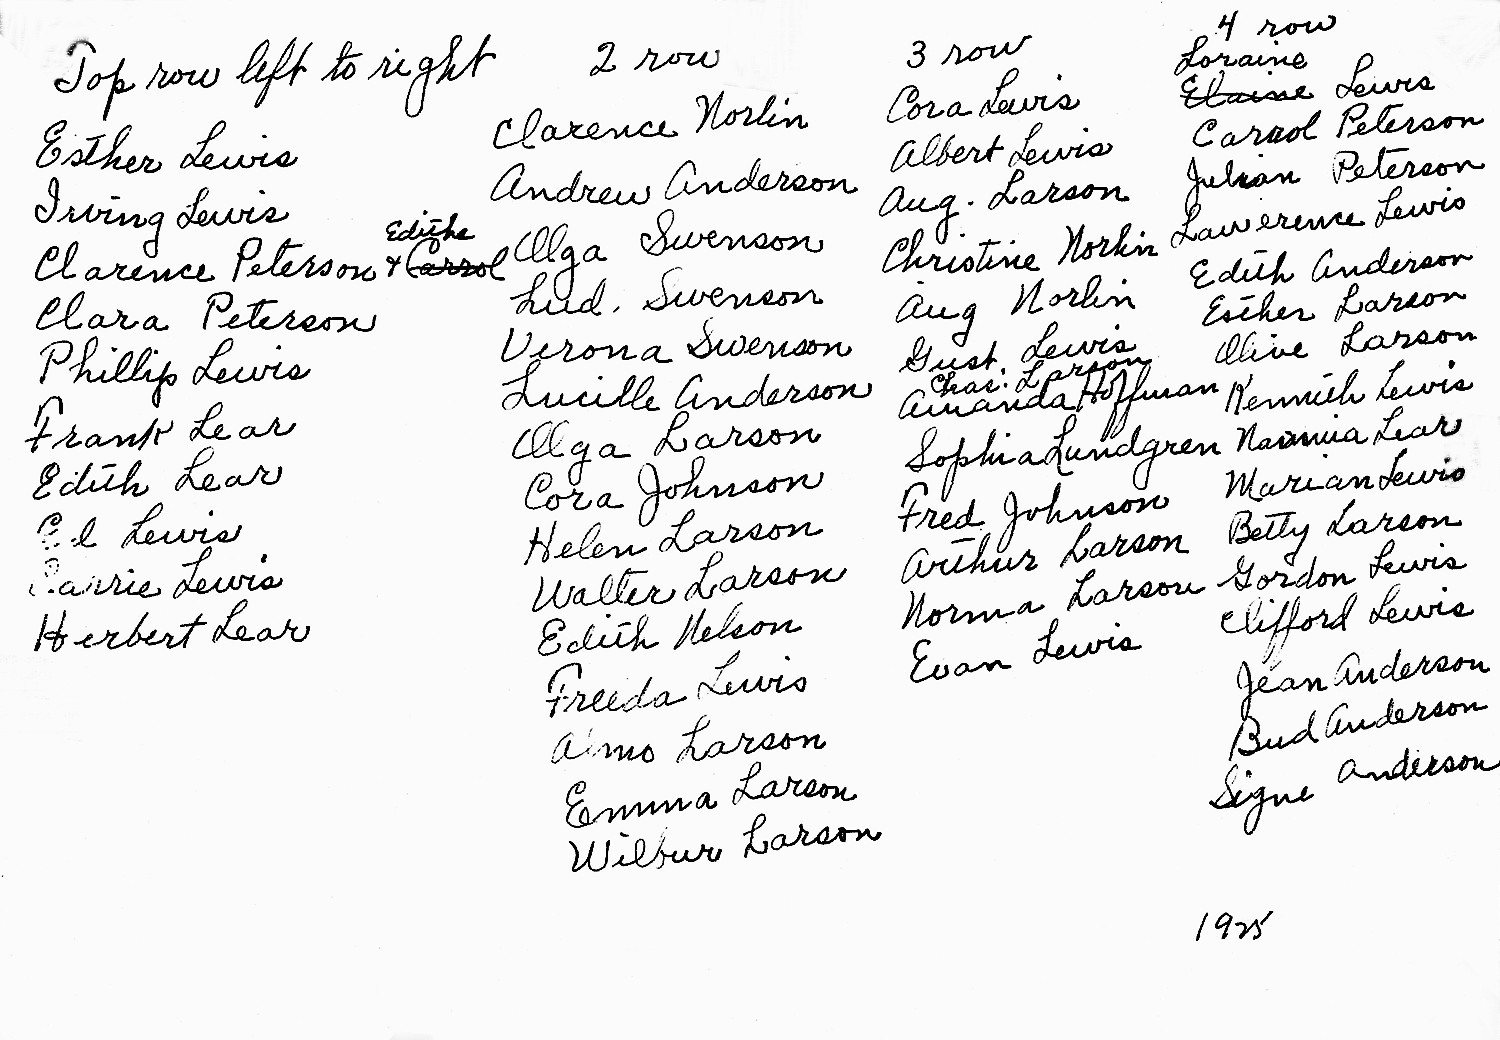 Top row left to right
Esther Lewis
Irving Lewis
Clarence Peterson & Edith Carrol
Clara Peterson
Phillip Lewis
Frank Lear
Edith Lear
Ed Lewis
Carrie Lewis
Herbert Lear
2 row
Clarence Norlin
Andrew Anderson
Olga Swenson
Lud. Swenson
Verona Swenson
Lucille Anderson
Olga Larson
Cora Johnson
Helen Larson
Walter Larson
Edith Nelson
Freeda Lewis
Larson
Emma Larson
Wilbur Larson
3 row
Cora Lewis
Albert Lewis
Aug. Larson
Christine Norlin
Aug Norlin
Gust. Lewis
Chas. Larson
Amanda Hoffman
Sophia Lundgren
Fred Johnson
Arthur Larson
Norma Larson
Evan Lewis
4 row
Loraine
Elaine Lewis
Carrol Peterson
Julian Peterson
Lawerence Lewis
Edith Anderson
Esther Larson
Olive Larson
Kenneth Lewis
Lear
Marian Lewis
Betty Larson
Gordon Lewis
Clifford Lewis
Jean Anderson
Bud Anderson
Signe Anderson
1925